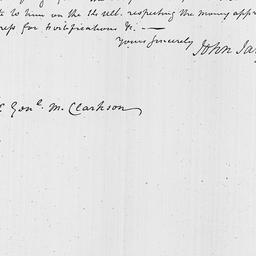 to him on the 1h ult. respecting the money appr
ress for Fortifications &c. —
Yours sincerely
John Jay
Genl. M. Clarkson